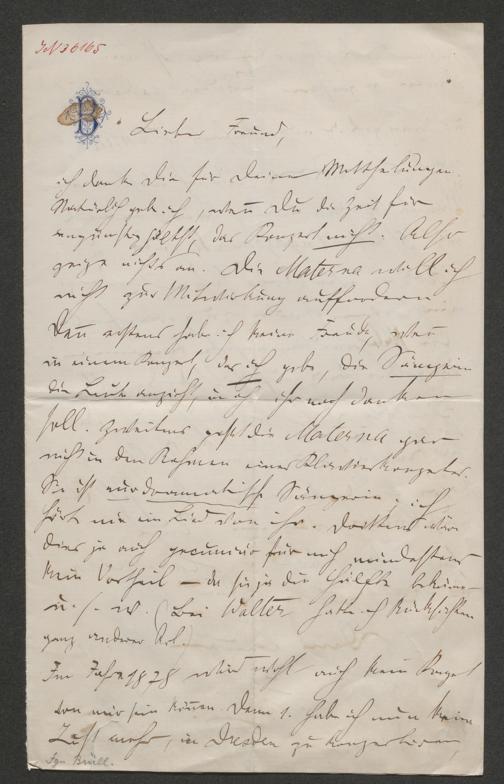 JN 36165
B
Lieber Freund,
ich danke Dir für Deine Mittheilungen.
Natürlich gebe ich, wenn Du die Zeit für
ungünstig hältst, das Konzert nicht. Also
zeige nichts an. Die Materna will ich
nicht zur Mitwirkung auffordern
Deñ erstens habe ich keine Freude, weñ
in einem Konzert, das ich gebe, die Sängerin
die Leute anzieht, u. ich ihr noch danken
soll. Zweitens paßt die Materna gar
nicht in den Rahmen eines Klavierkonzertes.
Sie ist nur dramatische Sängerin; ich
hörte nie ein Lied von ihr. Drittens wäre
dies ja auch pecuniär für mich mindestens
kein Vortheil – da sie ja die Hälfte bekäme
u. s. w. (Bei Walter hatte ich Rücksichten
ganz anderer Art.)
Im Jahre 1878 wird wohl auch kein Konzert
von mir sein können. Denn 1. habe ich nun keine
Lust mehr, in Dresden zu konzertiren,
Ign Brüll.